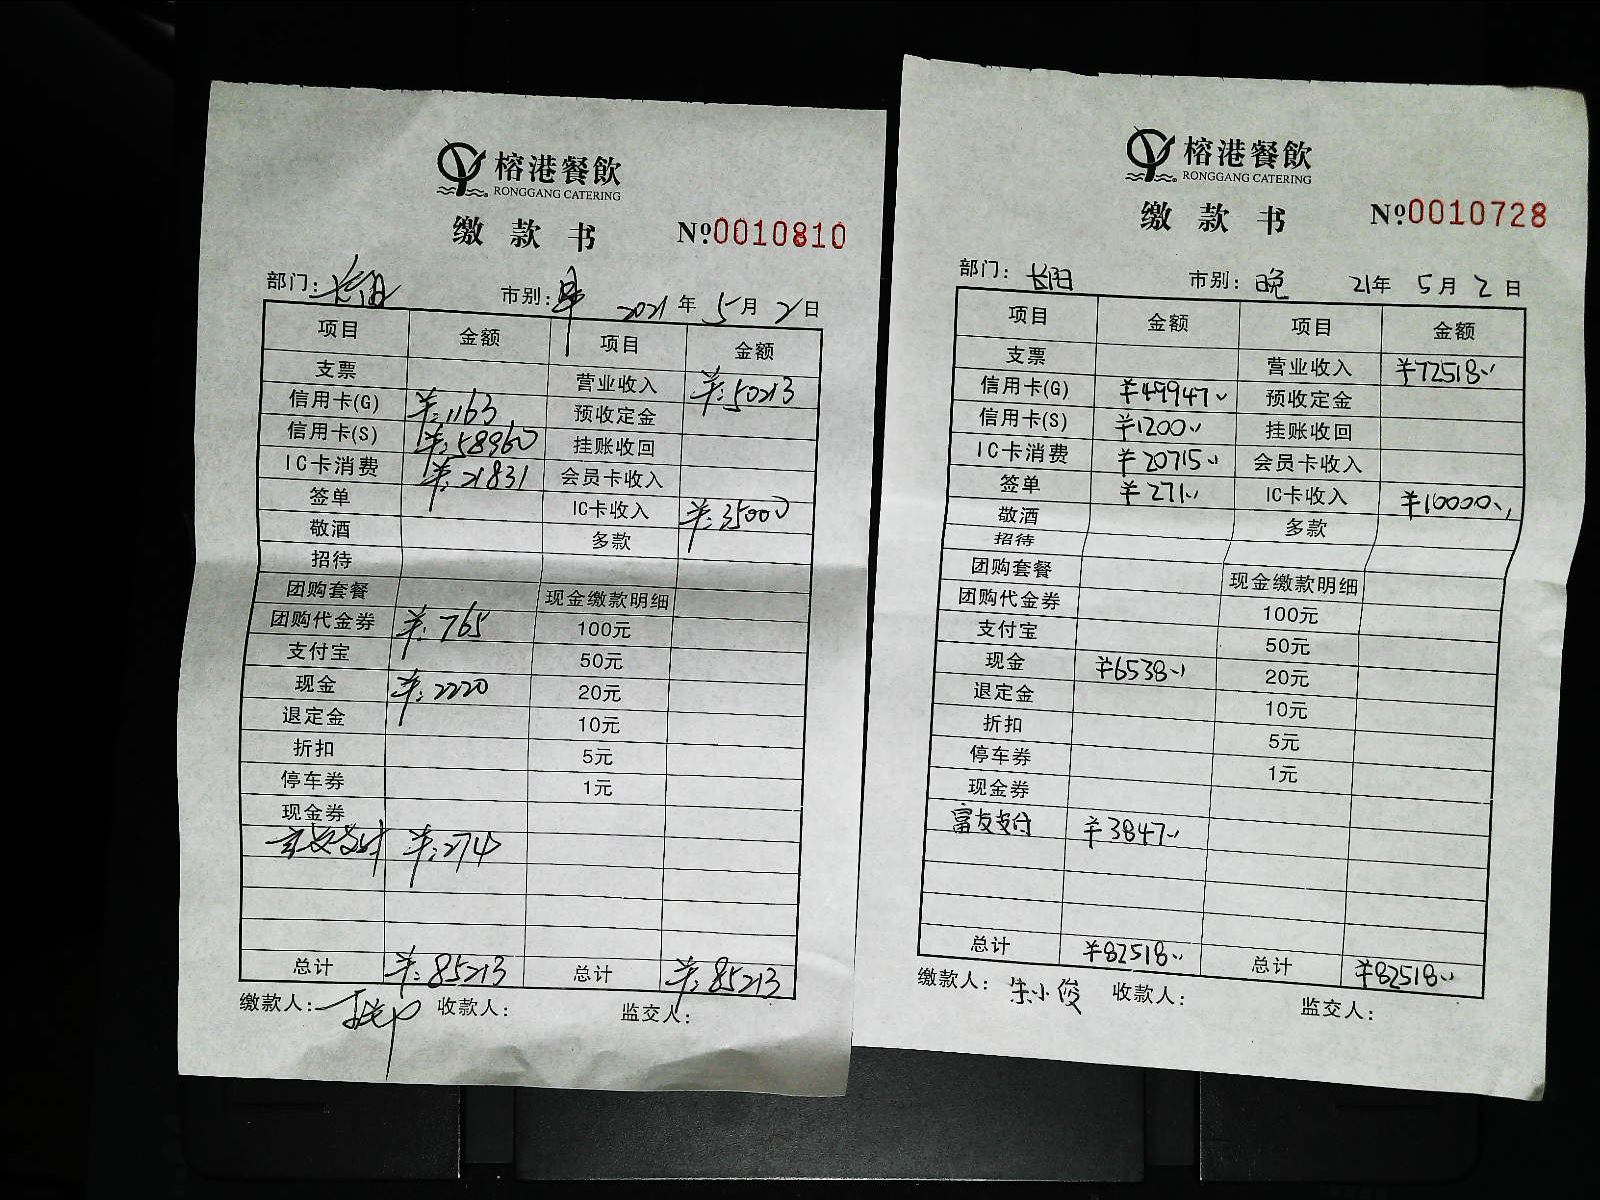 榕港餐飲
RONGGANG CATERING
缴款书 №0010810
部门:长阳 市别:早 2021年5月2日
项目 金额 项目 金额
支票 营业收入 ¥:50213
信用卡(G) ¥:1163 预收定金
信用卡(S) ¥:58960 挂账收回
IC卡消费 ¥:21831 会员卡收入
签单 IC卡收入 ¥:35000
敬酒 多款
招待
团购套餐 现金缴款明细
团购代金券 ¥:765 100元
支付宝 50元
现金 ¥:2220 20元
退定金 10元
折扣 5元
停车券 1元
现金券
富友支付 ¥:274
总计 ¥:85213 总计 ¥:85213
缴款人: 收款人: 监交人:
榕港餐飲
RONGGANG CATERING
缴款书 №0010728
部门:长阳 市别:晚 21年5月2日
项目 金额 项目 金额
支票 营业收入 ¥72518..
信用卡(G) ¥49947.. 预收定金
信用卡(S) ¥1200.. 挂账收回
IC卡消费 ¥20715.. 会员卡收入
签单 ¥271.. IC卡收入 ¥10000..
敬酒 多款
招待
团购套餐 现金缴款明细
团购代金券 100元
支付宝 50元
现金 ¥6538.. 20元
退定金 10元
折扣 5元
停车券 1元
现金券
富友支付 ¥3847..
总计 ¥82518.. 总计 ¥82518..
缴款人:朱小俊 收款人: 监交人: